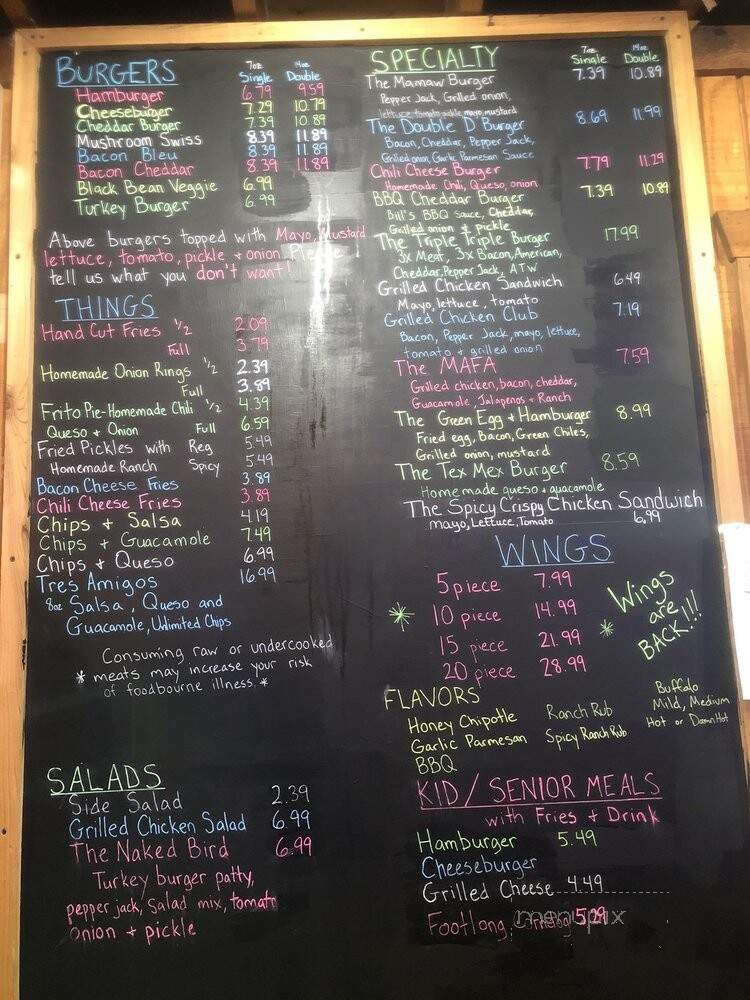 BURGERS
7oz Single 14oz Double
Hamburger 6.79 9.59
Cheeseburger 7.29 10.79
Cheddar Burger 7.39 10.89
Mushroom Swiss 8.39 11.89
Bacon Bleu 8.39 11.89
Bacon Cheddar 8.39 11.89
Black Bean Veggie 6.99
Turkey Burger 6.99
Above burgers topped with Mayo, Mustard
lettuce, tomato, pickle + onion. Please
tell us what you don't want!
THINGS
Hand Cut Fries 1/2 2.09
Full 3.79
Homemade Onion Rings 1/2 2.39
Full 3.89
Frito Pie-Homemade Chili 1/2 4.39
Queso + Onion Full 6.59
Fried Pickles with Reg 5.49
Homemade Ranch Spicy 5.49
Bacon Cheese Fries 3.89
Chili Cheese Fries 3.89
Chips + Salsa 4.19
Chips + Guacamole 7.49
Chips + Queso 6.99
Tres Amigos 16.99
8oz Salsa, Queso and
Guacamole, Unlimited Chips
Consuming raw or undercooked
* meats may increase your risk
of foodbourne illness. *
SALADS
Side Salad 2.39
Grilled Chicken Salad 6.99
The Naked Bird 6.99
Turkey burger patty,
pepper jack, Salad mix, tomato
onion + pickle
SPECIALTY
7oz Single 14oz Double
The Mamaw Burger 7.39 10.89
Pepper Jack, Grilled onion,
lettuce tomato pickle mayo, mustard
The Double D Burger 8.69 11.99
Bacon, Cheddar, Pepper Jack,
Grilled onion, Garlic Parmesan Sauce
Chili Cheese Burger 7.79 11.29
Homemade Chili, Queso, onion
BBQ Cheddar Burger 7.39 10.89
Bill's BBQ Sauce, Cheddar,
Grilled onion + pickle
The Triple Triple Burger 17.99
3x Meat, 3x Bacon, American,
Cheddar, Pepper Jack, ATW
Grilled Chicken Sandwich 6.49
Mayo, lettuce, tomato
Grilled Chicken Club 7.19
Bacon, Pepper Jack, mayo, lettuce,
tomato + grilled onion
The MAFA 7.59
Grilled chicken, bacon, cheddar,
Guacamole, Jalapenos + Ranch
The Green Egg + Hamburger 8.99
Fried egg, Bacon, Green Chiles,
Grilled onion, mustard
The Tex Mex Burger 8.59
Homemade queso + guacamole
The Spicy Crispy Chicken Sandwich
mayo, Lettuce, Tomato 6.99
WINGS
5 piece 7.99
10 piece 14.99
15 piece 21.99
20 piece 28.99
* Wings are BACK!!! *
FLAVORS
Honey Chipotle
Garlic Parmesan
BBQ
Ranch Rub
Spicy Ranch Rub
Buffalo
Mild, Medium
Hot or Damn Hot
KID/SENIOR MEALS
with Fries + Drink
Hamburger 5.49
Cheeseburger
Grilled Cheese 4.49
Footlong Corndog 5.29
menupix